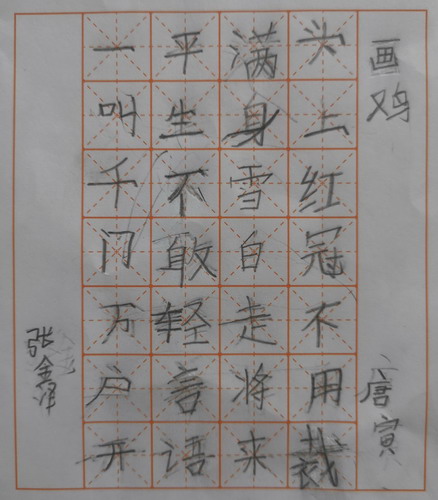 画鸡
唐寅
头上红冠不用裁
满身雪白走将来
平生不敢轻言语
一叫千门万户开
张鑫